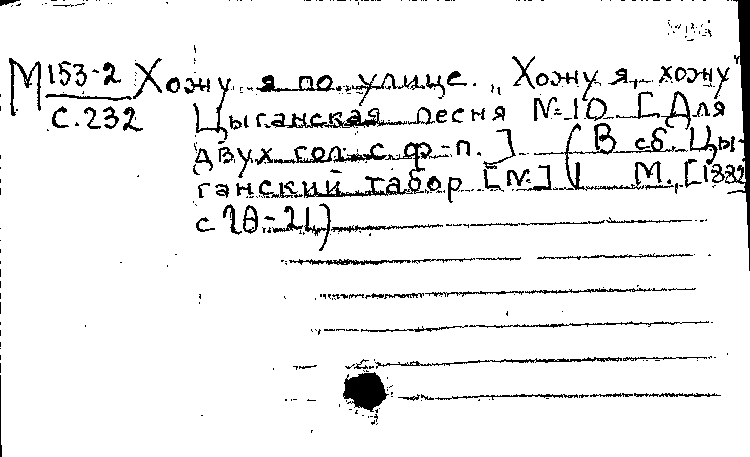 М 153-2 Хожу я по улице. „Хожу я, хожу"
С.232 Цыганская песня № 10 [Для
двух гол. с ф-п.] (В сб. Цы-
ганский табор [№] 1 М., [1882
с 20-21)